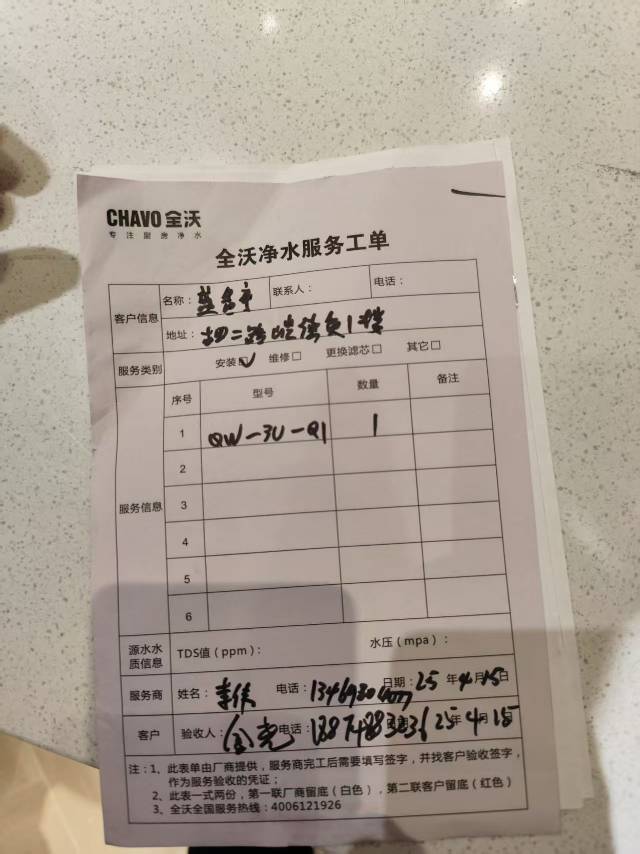 CHAVO 全沃
专注厨房净水
全沃净水服务工单
客户信息
名称：
联系人：
电话：
地址：
服务类别
安装☑ 维修□ 更换滤芯□ 其它□
服务信息
序号 型号 数量 备注
1 QW-3U-Q1 1
2
3
4
5
6
源水水质信息
TDS值（ppm）：
水压（mpa）：
服务商 姓名：李 电话： 日期：25 年4月15日
客户 验收人： 电话： 25年4月15
注：1、此表单由厂商提供，服务商完工后需要填写签字，并找客户验收签字，
作为服务验收的凭证；
2、此表一式两份，第一联厂商留底（白色），第二联客户留底（红色）
3、全沃全国服务热线：4006121926